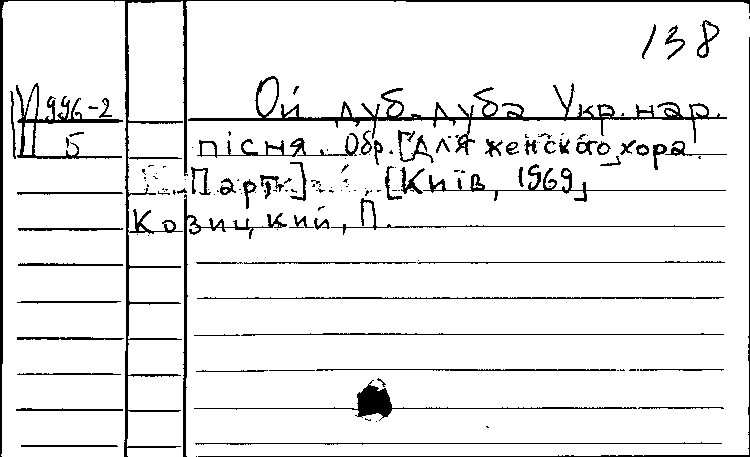 138
П 996-2 Ой дуб-дуба. Укр. нар.
Б пісня. Обр. [Для женского хора.
Парт] [Київ, 1969]
Козицкий, П.